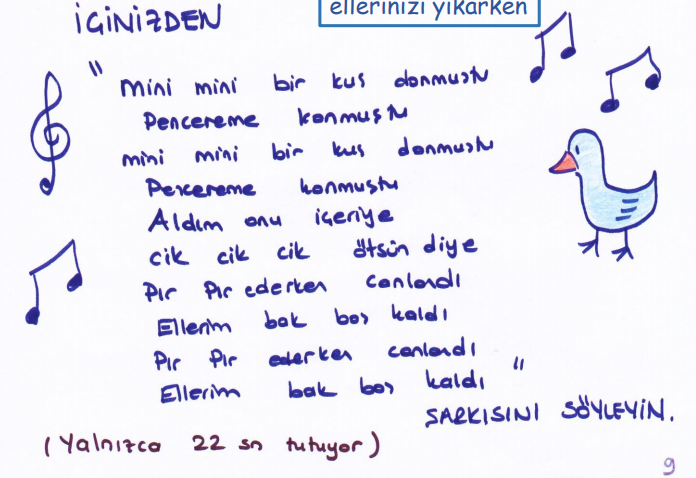 ellerinizi yıkarken
İÇİNİZDEN
"mini mini bir kuş donmuştu
Pencereme konmuştu
mini mini bir kuş donmuştu
Pencereme konmuştu
Aldım onu içeriye
cik cik cik ötsün diye
Pır pır ederken canlandı
Ellerim bak boş kaldı
Pır pır ederken canlandı
Ellerim bak boş kaldı"
ŞARKISINI SÖYLEYİN.
(Yalnızca 22 sn tutuyor)
9